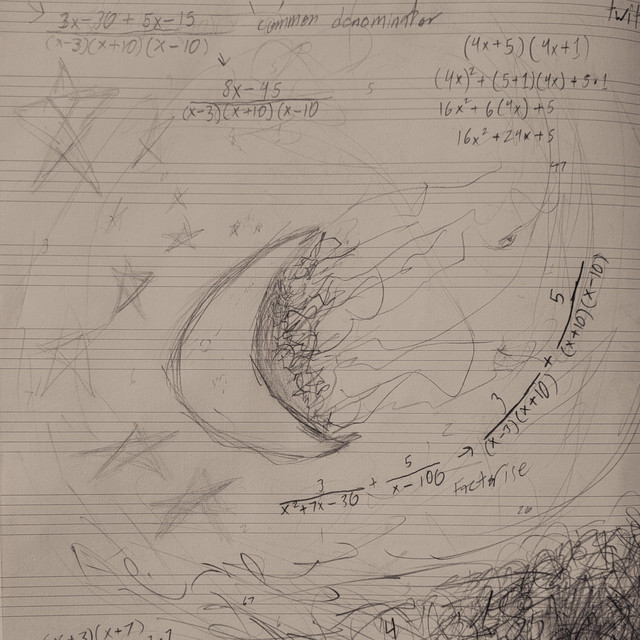 3x-30 + 5x-15
(x-3)(x+10)(x-10)
common denominator
8x-45
(x-3)(x+10)(x-10
(4x+5)(4x+1)
(4x)²+(5+1)(4x)+5•1
16x²+6(4x)+5
16x²+24x+5
3
x²+7x-30
+
5
x-100
→
3
(x-3)(x+10)
+
5
(x+10)(x-10)
Factorise
(x+3)(x+7)
4